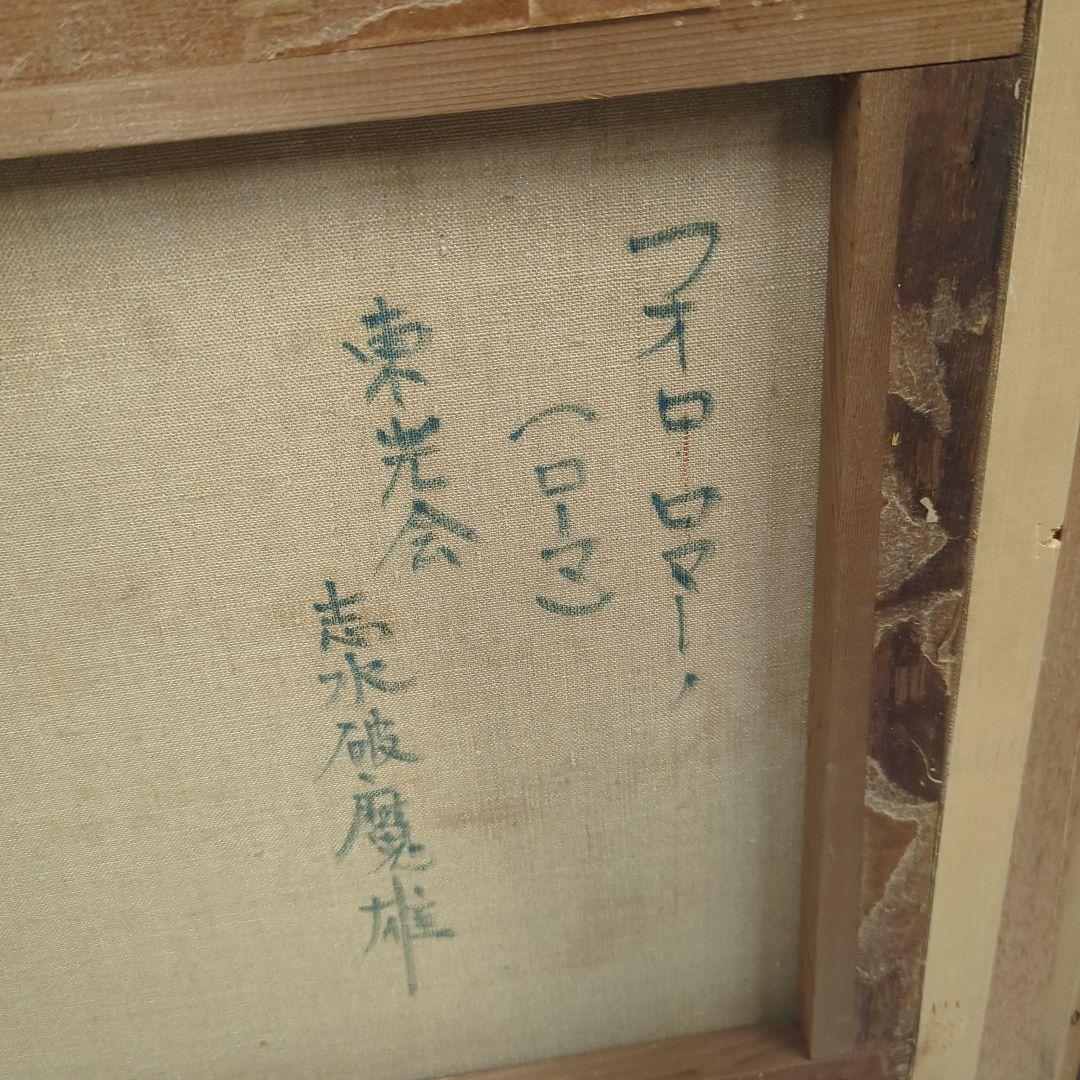 フオロロマーノ
(ローマ)
東光会
志水破魔雄